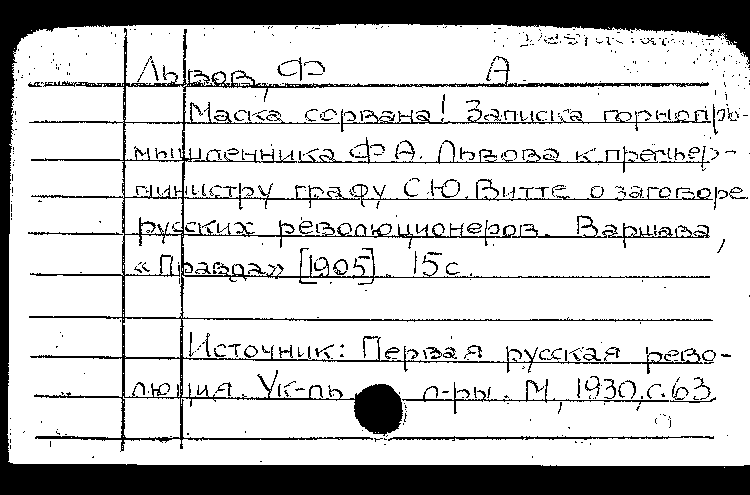 Львов, Ф А.
Маска сорвана! Записка горнопро-
мышленника Ф А. Львова к премьер-
министру графу С Ю. Витте о заговоре
русских революционеров. Варшава,
«Правда» [1905]. 15 с.
Источник: Первая русская рево-
люция. Ук-ль л-ры. М., 1930, с. 63